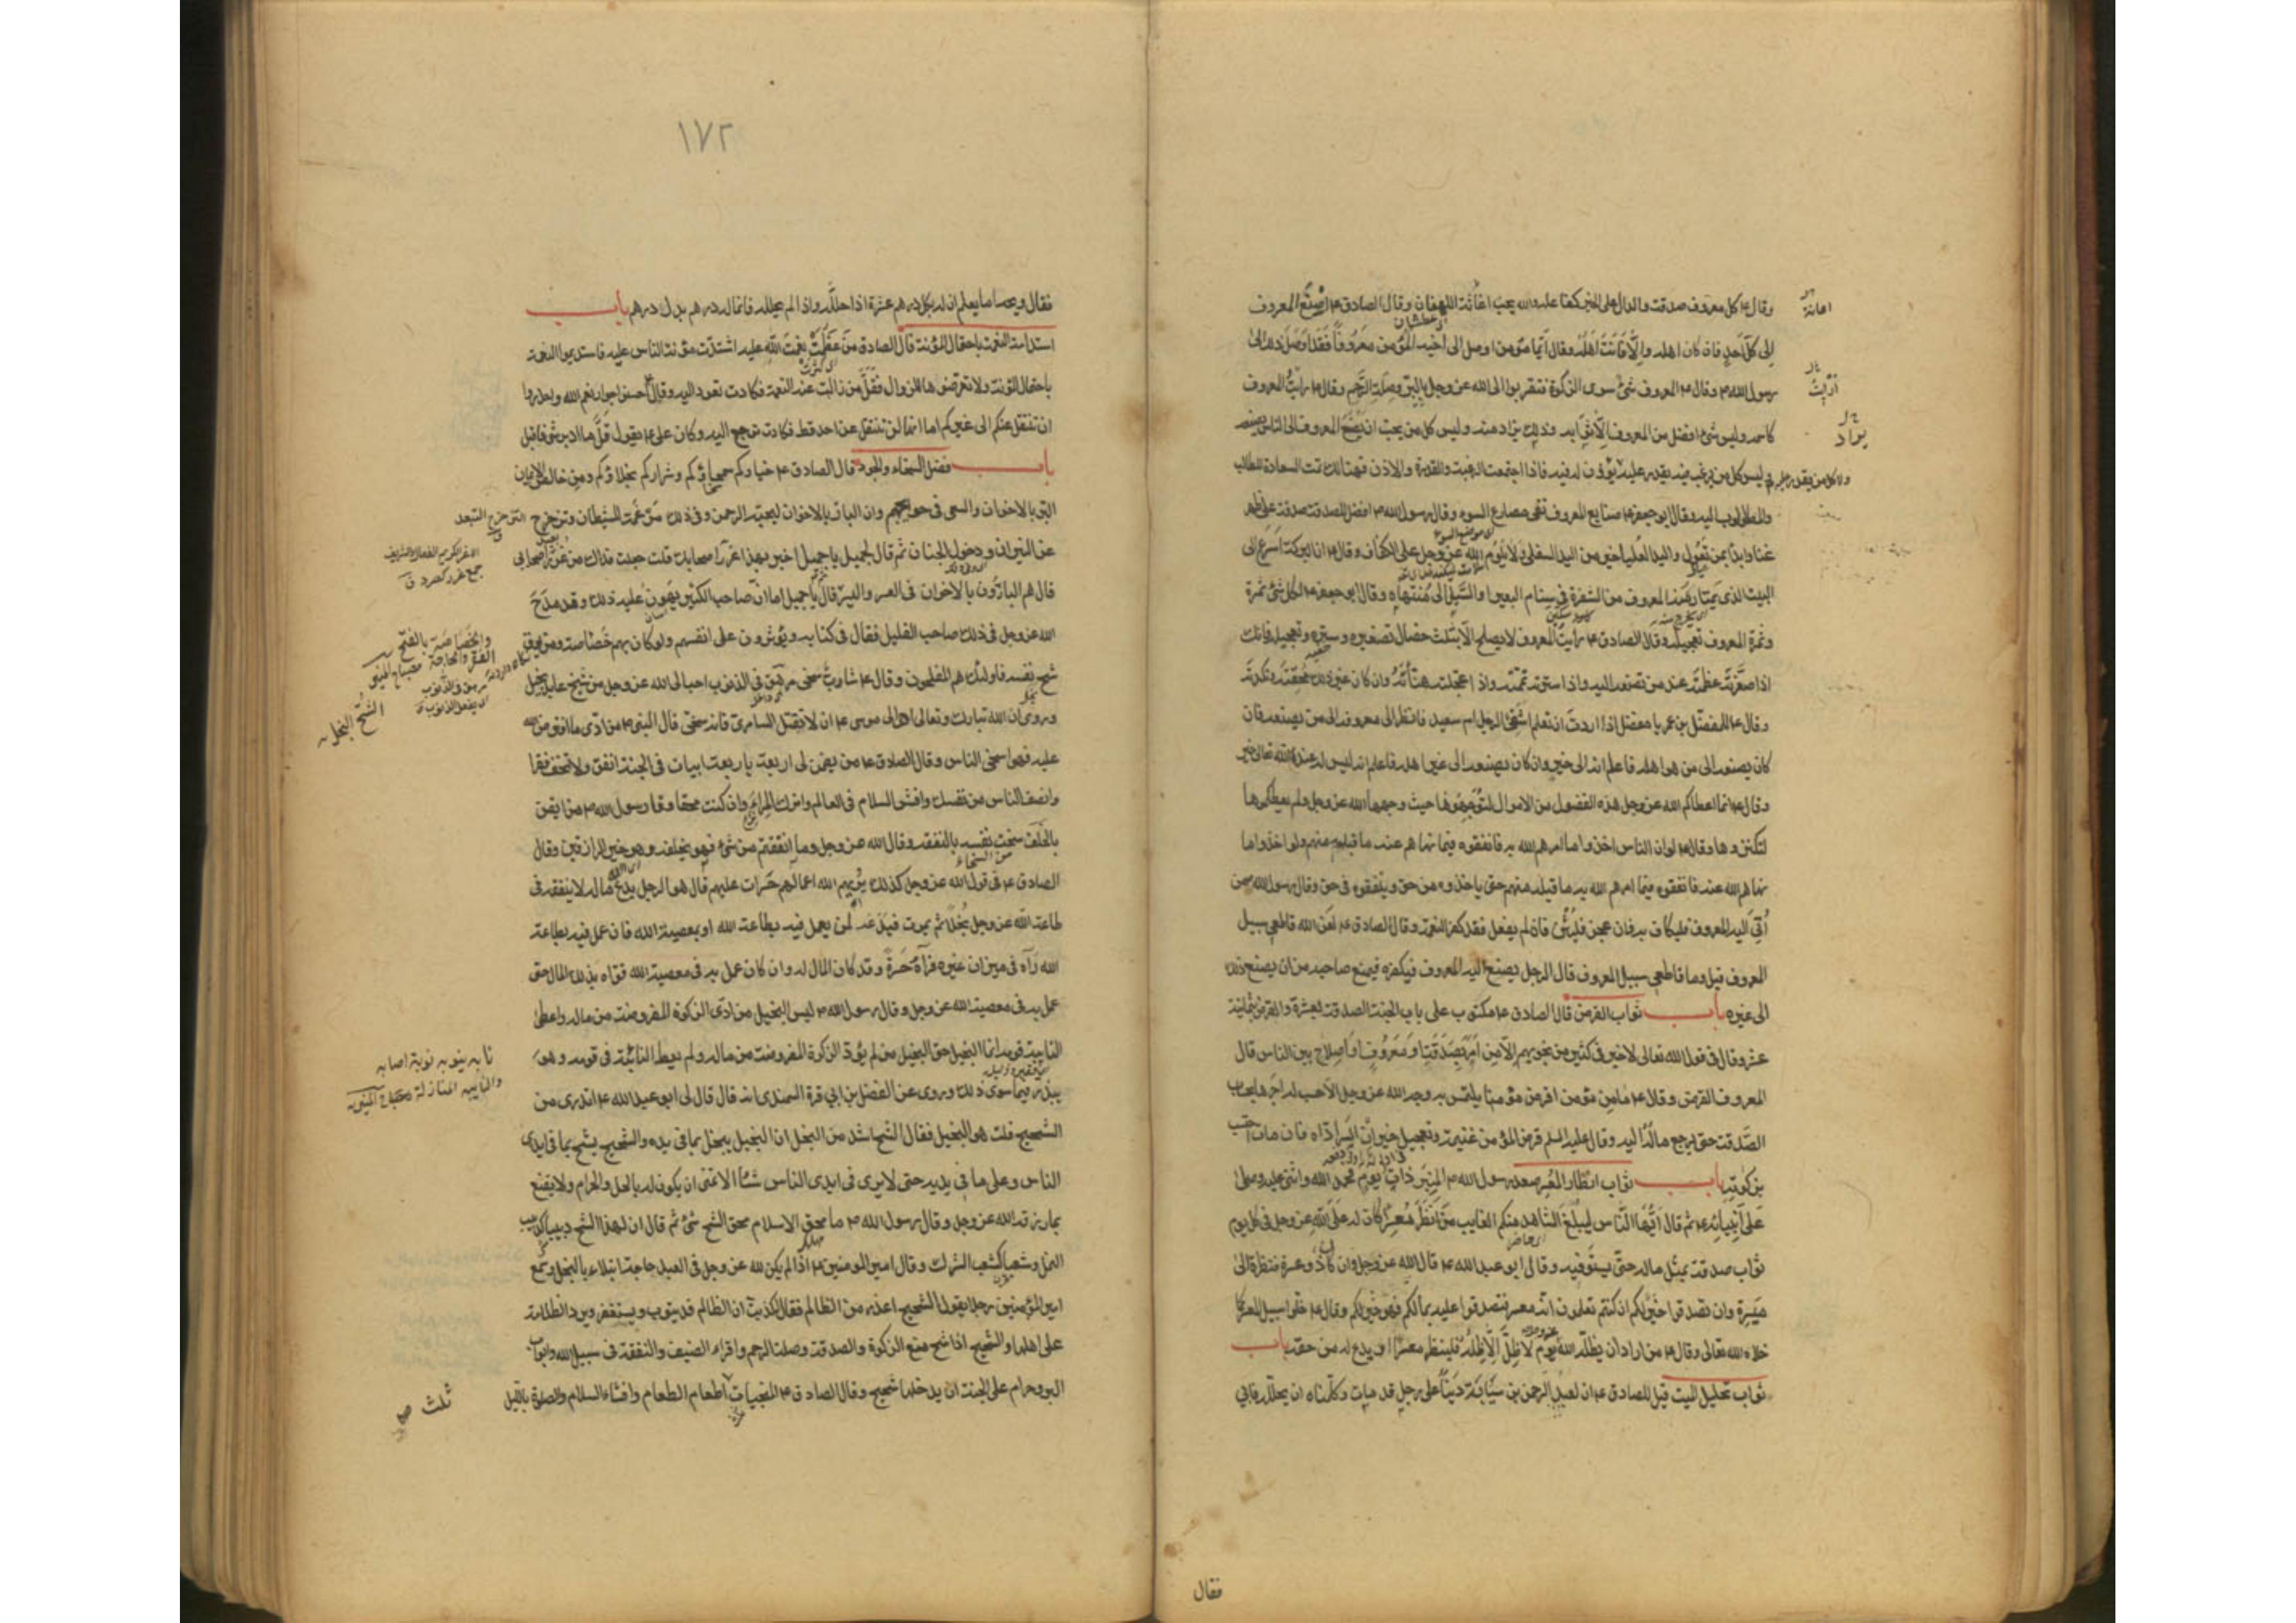 وقال ع كل معروف صدقة والدال على الخير كفاعله والله يحب اغاثة اللهفان وقال الصادق ع اصنع المعروف
الى كل احد فان كان اهله والا فانت اهله وقال ايما مؤمن اوصل الى اخيه المؤمن معروفا فقد اوصل ذلك الى
رسول الله ص وقال ع المعروف شئ سوى الزكوة فتقربوا الى الله عز وجل بالبر وصلة الرحم وقال ع رايت المعروف
كاسمه وليس شئ افضل من المعروف الا ثوابه وذلك يراد منه وليس كل من يحب ان يصنع المعروف الى الناس يصنعه
وليس كل من يرغب فيه يقدر عليه يؤذن له فيه فاذا اجتمعت الرغبة والقدرة والاذن فهنالك تمت السعادة للطالب
والمطلوب اليه وقال ابو جعفر ع صنايع المعروف تقى مصارع السوء وقال رسول الله ص افضل الصدقة صدقة عن ظهر
غنا وابدأ بمن تعول واليد العليا خير من اليد السفلى ولا يلوم الله عز وجل على الكفاف وقال ع ان البركة اسرع الى
البيت الذى يمتار منه المعروف من الشفرة فى سنام البعير او السيل الى منتهاه وقال ابو جعفر ع لكل شئ ثمرة
وثمرة المعروف تعجيله وقال الصادق ع رايت المعروف لا يصلح الا بثلث خصال تصغيره وستره وتعجيله فانك
اذا صغرته عظمته عند من تصنعه اليه واذا سترته تممته واذا عجلته هنأته وان كان غير ذلك محقته ونكدته
وقال ع للمفضل بن عمر يا مفضل اذا اردت ان تعلم اشقى الرجل ام سعيد فانظر الى معروفه الى من يصنعه فان
كان يصنعه الى من هو اهله فاعلم انه الى خير وان كان يصنعه الى غير اهله فاعلم انه ليس له عند الله تعالى خير
وقال ع انما اعطاكم الله عز وجل هذه الفضول من الاموال لتوجهوها حيث وجهها الله عز وجل ولم يعطكموها
لتكنزوها وقال ع لو ان الناس اخذوا ما امرهم الله به فانفقوه فيما نهاهم عنه ما قبله منهم ولو اخذوا ما
نهاهم الله عنه فانفقوه فيما امرهم الله به ما قبله منهم حتى ياخذوه من حق وينفقوه فى حق وقال رسول الله ص من
اتى اليه المعروف فليكاف به فان عجز فليثن فان لم يفعل فقد كفر النعمة وقال الصادق ع لعن الله قاطعى سبيل
المعروف قيل وما قاطعى سبيل المعروف قال الرجل يصنع اليه المعروف فيكفره فيمنع صاحبه من ان يصنع ذلك
الى غيره باب ثواب القرض قال الصادق ع مكتوب على باب الجنة الصدقة بعشرة والقرض بثمانية
عشر وقال فى قول الله تعالى لا خير فى كثير من نجويهم الا من امر بصدقة او معروف او اصلاح بين الناس قال
المعروف القرض وقال ع ما من مؤمن اقرض مؤمنا يلتمس به وجه الله عز وجل الا حسب له اجرها بحساب
الصدقة حتى يرجع ماله اليه وقال عليه السلم قرض المؤمن غنيمة وتعجيل خير ان ايسر اداه فان مات احتسب
من زكوته باب ثواب انظار المعسر صعد رسول الله ص المنبر ذات يوم فحمد الله واثنى عليه وصلى
على انبيائه ع ثم قال ايها الناس ليبلغ الشاهد منكم الغايب من انظر معسرا كان له على الله عز وجل فى كل يوم
ثواب صدقة بمثل ماله حتى يستوفيه وقال ابو عبد الله ع قال الله عز وجل وان كان ذو عسرة فنظرة الى
ميسرة وان تصدقوا خير لكم ان كنتم تعلمون انه معسر فتصدقوا عليه بمالكم فهو خير لكم وقال ع خلوا سبيل المعسر كما
خلاه الله تعالى وقال ع من اراد ان يظله الله يوم لا ظل الا ظله فلينظر معسرا او يدع له من حقه باب
ثواب تحليل الميت قيل للصادق ع ان لعبد الرحمن بن سيابة دينا على رجل قد مات وكلمناه ان يحلله فابى
فقال
١٧٢
فقال ويحه اما يعلم ان له بكل درهم عشرة اذا حلله واذا لم يحلله فانما له درهم بدل درهم باب
استدامة النعمة باحتمال المؤنة قال الصادق من عظمت نعمة الله عليه اشتدت مؤنة الناس عليه فاستديموا النعمة
باحتمال المؤنة ولا تعرضوها للزوال فقل من زالت عنه النعمة فكادت تعود اليه وقال احسنوا جوار نعم الله واحذروا
ان تنتقل عنكم الى غيركم اما انها لن تنتقل عن احد قط فكادت ترجع اليه وكان على ع يقول قل ما ادبر شئ فاقبل
باب فضل السخاء والجود قال الصادق ع خياركم سمحاؤكم وشراركم بخلاؤكم ومن خالص الايمان
البر بالاخوان والسعى فى حوايجهم وان البار بالاخوان ليحبه الرحمن وفى ذلك مرغمة للشيطان وتزحزح
عن النيران ودخول الجنان ثم قال لجميل يا جميل اخبر بهذا غرر اصحابك قلت جعلت فداك من غرر اصحابى
قال هم البارون بالاخوان فى العسر واليسر قال يا جميل اما ان صاحب الكثير يهون عليه ذلك وقد مدح
الله عز وجل فى ذلك صاحب القليل فقال فى كتابه ويؤثرون على انفسهم ولو كان بهم خصاصة ومن يوق
شح نفسه فاولئك هم المفلحون وقال ع شاب سخى مرهق فى الذنوب احب الى الله عز وجل من شيخ عابد بخيل
وروى ان الله تبارك وتعالى اوحى الى موسى ع ان لا تقتل السامرى فانه سخى قال النبى ص من ادى ما افترض الله
عليه فهو اسخى الناس وقال الصادق ع من يضمن لى اربعة باربعة ابيات فى الجنة انفق ولا تخف فقرا
وانصف الناس من نفسك وافش السلام فى العالم واترك المراء وان كنت محقا وقال رسول الله ص من ايقن
بالخلف سخت نفسه بالنفقة وقال الله عز وجل وما انفقتم من شئ فهو يخلفه وهو خير الرازقين وقال
الصادق ع فى قول الله عز وجل كذلك يريهم الله اعمالهم حسرات عليهم قال هو الرجل يدع ماله لا ينفقه فى
طاعة الله عز وجل بخلا ثم يموت فيدعه لمن يعمل فيه بطاعة الله او بمعصية الله فان عمل فيه بطاعة
الله رآه فى ميزان غيره فرآه حسرة وقد كان المال له وان كان عمل به فى معصية الله قواه بذلك المال حتى
عمل به فى معصية الله عز وجل وقال رسول الله ص ليس البخيل من ادى الزكوة المفروضة من ماله واعطى
النايبة فى قومه انما البخيل حق البخيل من لم يؤد الزكوة المفروضة من ماله ولم يعط النائبة فى قومه وهو
يبذر فيما سوى ذلك وروى عن الفضل بن ابى قرة السمندى انه قال قال لى ابو عبد الله ع اتدرى من
الشحيح قلت هو البخيل فقال الشح اشد من البخل ان البخيل يبخل بما فى يده والشحيح يشح بما فى ايدى
الناس وعلى ما فى يديه حتى لا يرى فى ايدى الناس شيئا الا تمنى ان يكون له بالحل والحرام ولا يقنع
بما رزقه الله عز وجل وقال رسول الله ص ما محق الاسلام محق الشح شئ ثم قال ان لهذا الشح دبيبا كدبيب
النمل وشعبا كشعب الشرك وقال امير المؤمنين ع اذا لم يكن لله عز وجل فى العبد حاجة ابتلاه بالبخل وسمع
امير المؤمنين رجلا يقول الشحيح اعذر من الظالم فقال كذبت ان الظالم قد يتوب ويستغفر ويرد الظلامة
على اهلها والشحيح اذا شح منع الزكوة والصدقة وصلة الرحم واقراء الضيف والنفقة فى سبيل الله وابواب
البر وحرام على الجنة ان يدخلها شحيح وقال الصادق ع المنجيات اطعام الطعام وافشاء السلام والصلوة بالليل